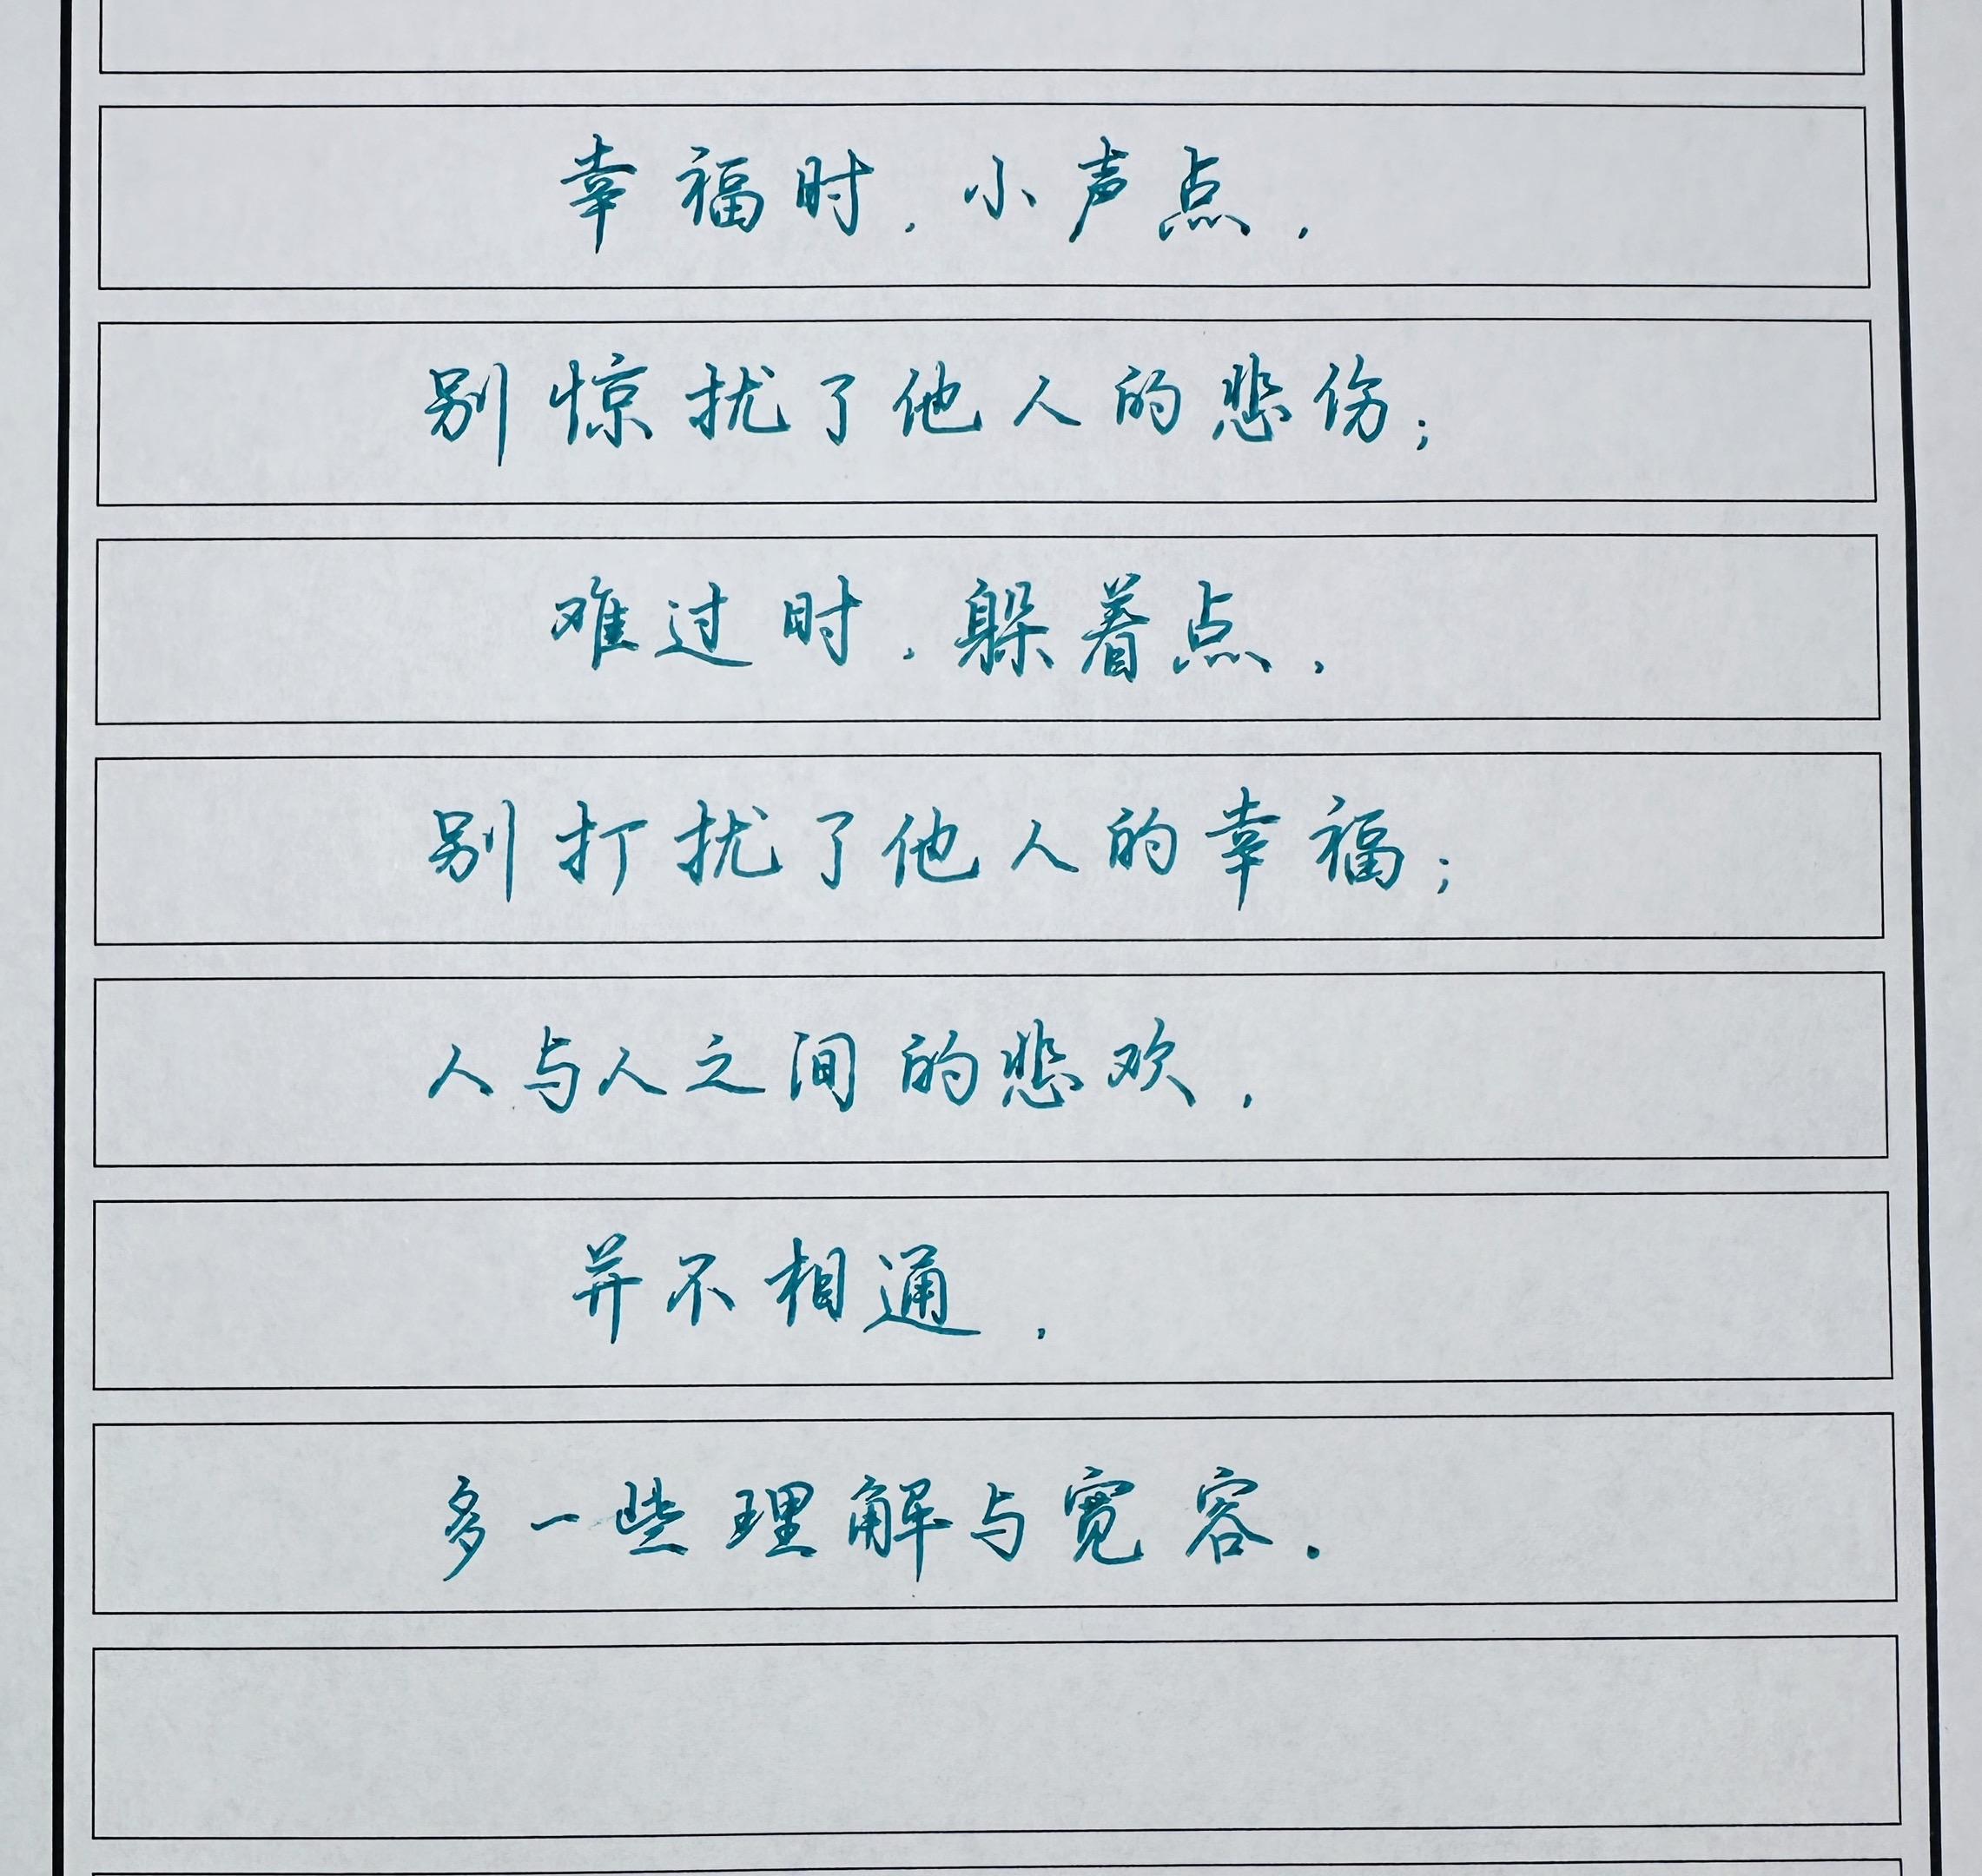 幸福时，小声点，
别惊扰了他人的悲伤；
难过时，躲着点，
别打扰了他人的幸福；
人与人之间的悲欢，
并不相通，
多一些理解与宽容.